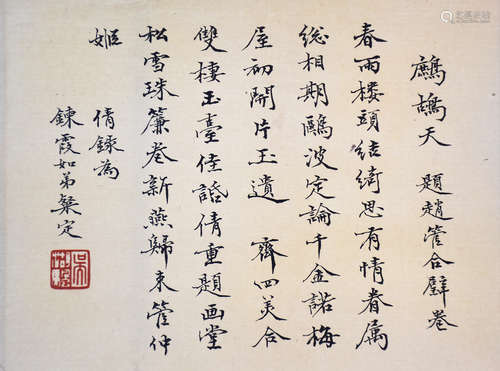 鷓鴣天 題趙管合璧卷
春雨楼頭結綺思有情眷属
総相期鷗波定論千金諾梅
屋初開片玉遺 齊四美合
雙棲玉臺佳話倩重題画堂
松雪珠簾卷新燕歸来管仲
姬
倩録為
鍊霞如弟粲定
吳